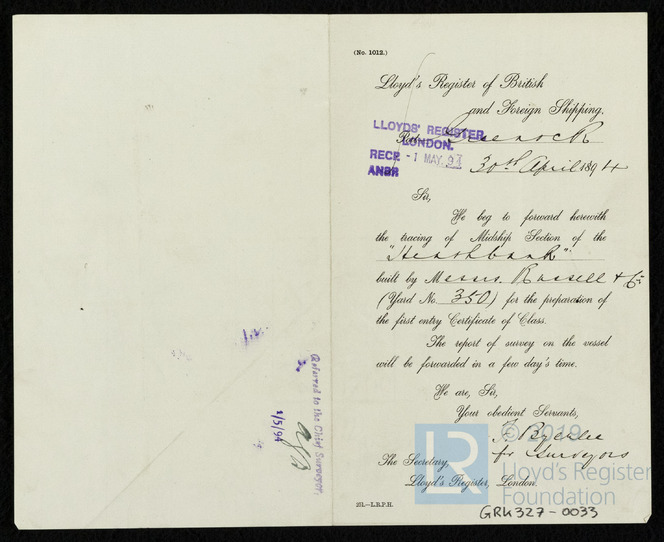 (No. 1012.)
Lloyd's Register of British
and Foreign Shipping,
LLOYDS' REGISTER,
LONDON.
RECD -1 MAY 94
ANSR
Port Greenock
30th April 1894
Sir,
We beg to forward herewith
the tracing of Midship Section of the
"Heathbank"
built by Messrs. Russell & Co
(Yard No. 350) for the preparation of
the first entry Certificate of Class.
The report of survey on the vessel
will be forwarded in a few day's time.
We are, Sir,
Your obedient Servants,
for Surveyors
The Secretary,
Lloyd's Register, London.
251.—L.R.P.H.
GRK327-0033
Referred to the Chief Surveyor,
1/5/94
© 2019
LR
Lloyd's Register
Foundation